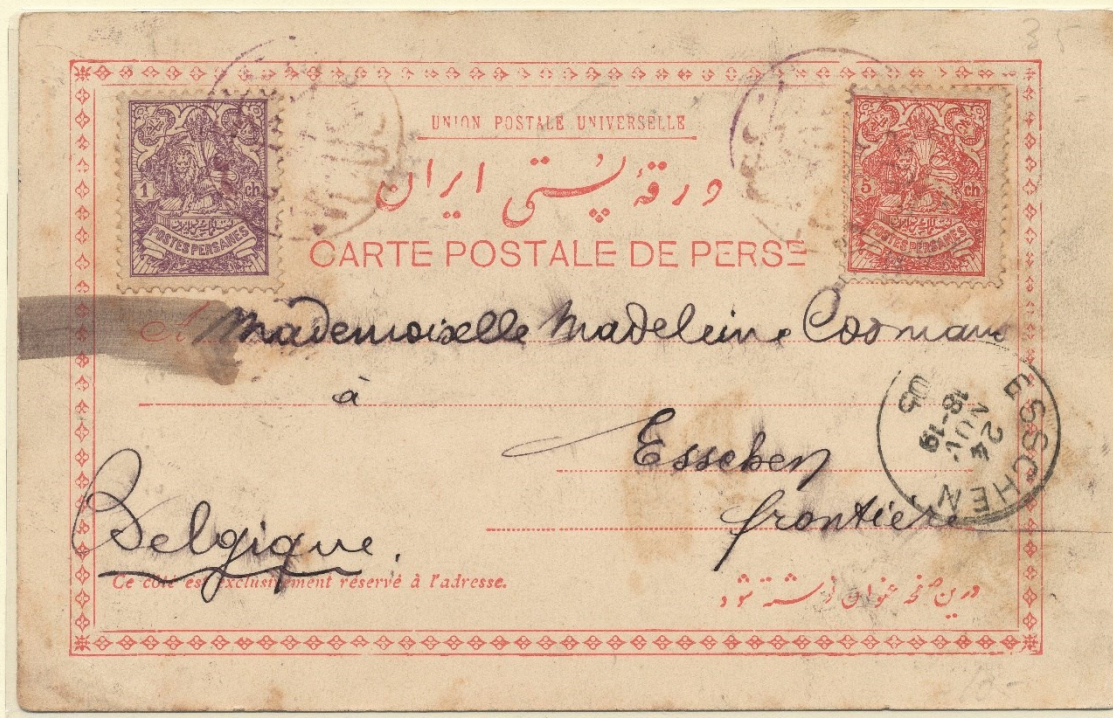 UNION POSTALE UNIVERSELLE
ورقهٔ پستی ایران
CARTE POSTALE DE PERSE
1 ch
POSTES PERSANES
5 ch
POSTES PERSANES
A Mademoiselle Madeleine Cosmans
à
Esschen
frontière
Belgique.
ESSCHEN
18-19
24
Ce côté est exclusivement réservé à l'adresse.
درین صفحه عنوان نوشته شود